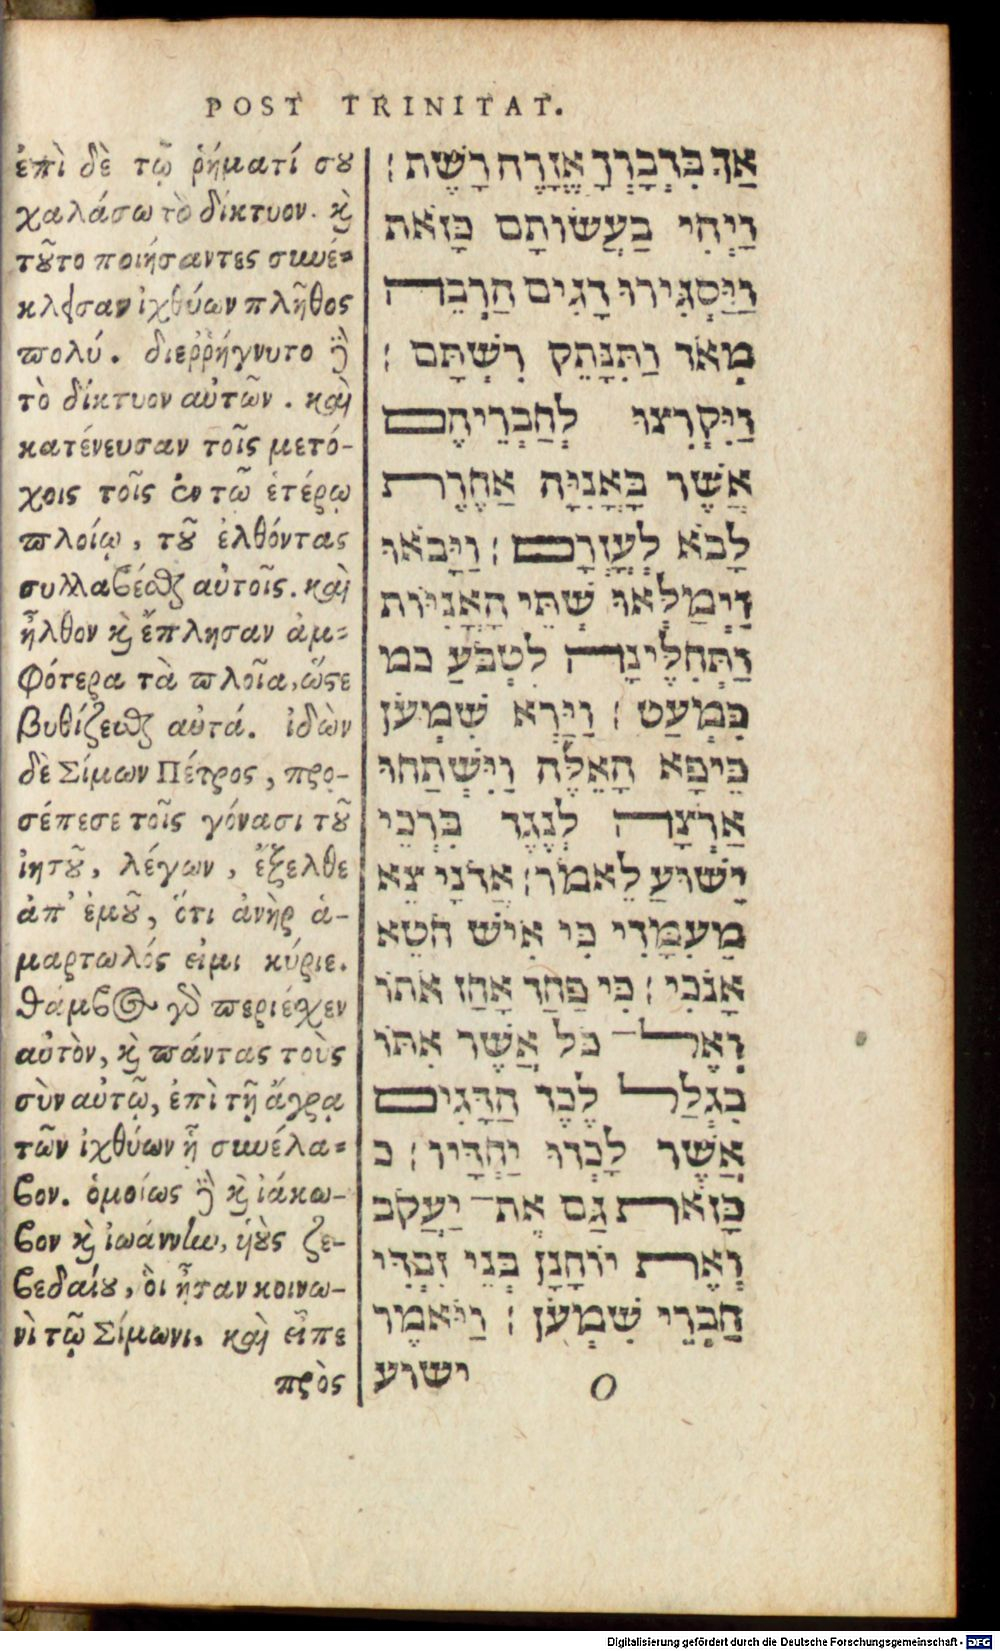 POST TRINITAT.
ἐπὶ δὲ τῷ ῥήματί σȣ
χαλάσω τὸ δίκτυον. ϗ̀
τȣ͂το ποιήσαντες συνέ-
κλεισαν ἰχθύων πλῆθος
πολύ. διεῤῥήγνυτο δὲ
τὸ δίκτυον αὐτῶν. καὶ
κατένευσαν τοῖς μετό-
χοις τοῖς ἐν τῷ ἑτέρῳ
πλοίῳ, τȣ͂ ἐλθόντας
συλλαβέσθαι αὐτοῖς. καὶ
ἦλθον ϗ̀ ἔπλησαν ἀμ-
φότερα τὰ πλοῖα, ὥστε
βυθίζεσθαι αὐτά. ἰδὼν
δὲ Σίμων Πέτρος, προ-
σέπεσε τοῖς γόνασι τȣ͂
ἰησȣ͂, λέγων, ἔξελθε
ἀπ' ἐμȣ͂, ὅτι ἀνὴρ ἁ-
μαρτωλός εἰμι κύριε.
θάμβος γὰρ περιέχεν
αὐτὸν, ϗ̀ πάντας τοὺς
σὺν αὐτῷ, ἐπὶ τῇ ἄγρᾳ
τῶν ἰχθύων ᾗ συνέλα-
βον. ὁμοίως δὲ ϗ̀ ἰάκω-
βον ϗ̀ ἰωάννην, ὑιȣ̀ς ζε-
βεδαίȣ, ὃι ἦσαν κοινω-
νὶ τῷ Σίμωνι. καὶ εἶπε
πρὸς
אַךְ בִּדְבָרְךָ אֶזְרֶה רָשֶׁת׃
וַיְהִי בַּעֲשׂוֹתָם כָּזֹאת
וַיַּסְגִּירוּ דָגִים הַרְבֵּה
מְאֹד וַתִּנָּתֵק רִשְׁתָּם׃
וַיִּקְרְצוּ לְחַבְרֵיהֶם
אֲשֶׁר בָּאֳנִיָּה אַחֶרֶת
לָבֹא לְעָזְרָם׃ וַיָּבֹאוּ
וַיְמַלְאוּ שְׁתֵּי הָאֳנִיּוֹת
וַתְּחִלֶּינָה לִטְבֹּעַ כמ
כִּמְעַט׃ וַיַּרְא שִׁמְעֹן
כֵּיפָא הָאֵלֶּה וַיִּשְׁתַּחוּ
אַרְצָה לְנֶגֶד בִּרְכֵּי
יֵשׁוּעַ לֵאמֹר׃ אֲדֹנָי צֵא
מֵעִמָּדִי כִּי אִישׁ חֹטֵא
אָנֹכִי׃ כִּי פַחַד אָחַז אֹתוֹ
וְאֶל־ כֹּל אֲשֶׁר אִתּוֹ
בִּגְלַל לֶכֶד הַדָּגִים
אֲשֶׁר לָכְדוּ יַחְדָּיו׃ כ
כָּזֹאת גַּם אֶת־ יַעֲקֹב
וְאֶת יוֹחָנָן בְּנֵי זַבְדִּי
חַבְרֵי שִׁמְעֹן׃ וַיֹּאמֶר
ישוע
O
Digitalisierung gefördert durch die Deutsche Forschungsgemeinschaft - DFG